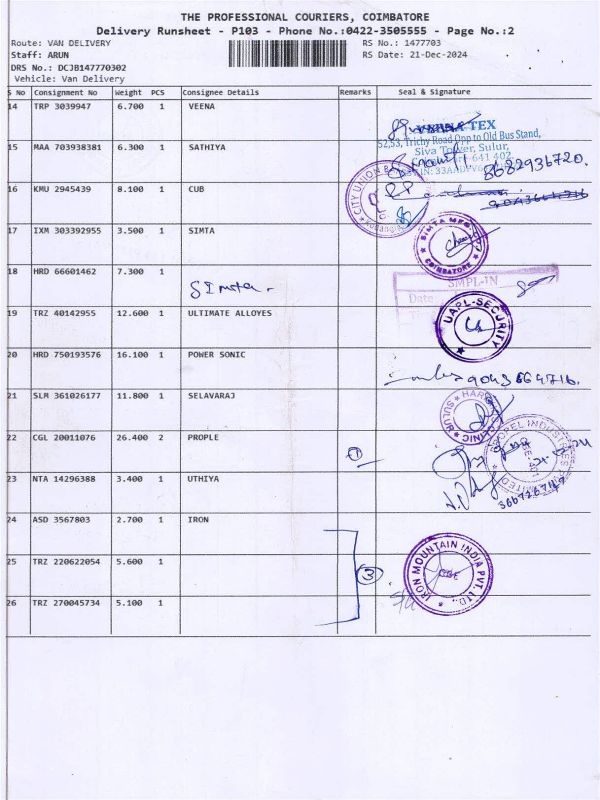 THE PROFESSIONAL COURIERS, COIMBATORE
Delivery Runsheet - P103 - Phone No.:0422-3505555 - Page No.:2
Route: VAN DELIVERY RS No.: 1477703
Staff: ARUN RS Date: 21-Dec-2024
DRS No.: DCJB147770302
Vehicle: Van Delivery
S No Consignment No Weight PCS Consignee Details Remarks Seal & Signature
14 TRP 3039947 6.700 1 VEENA
TEX
52,53, Trichy Road Opp to Old Bus Stand,
15 MAA 703938381 6.300 1 SATHIYA
Siva Tower, Sulur,
641 402
8682936720.
16 KMU 2945439 8.100 1 CUB
CITY UNION
9043664716
17 IXM 303392955 3.500 1 SIMTA
SIMTA MFG
COIMBATORE
18 HRD 66601462 7.300 1
Simta -
SMPL-IN
Date
19 TRZ 40142955 12.600 1 ULTIMATE ALLOYES
UAPL-SECURITY
20 HRD 750193576 16.100 1 POWER SONIC
9043664716.
21 SLM 361026177 11.800 1 SELAVARAJ
CLINIC SULUR
22 CGL 20011076 26.400 2 PROPLE
1
PROPEL INDUSTRIES
23 NTA 14296388 3.400 1 UTHIYA
24 ASD 3567803 2.700 1 IRON
25 TRZ 220622054 5.600 1
3
IRON MOUNTAIN INDIA PVT. LTD.,
26 TRZ 270045734 5.100 1